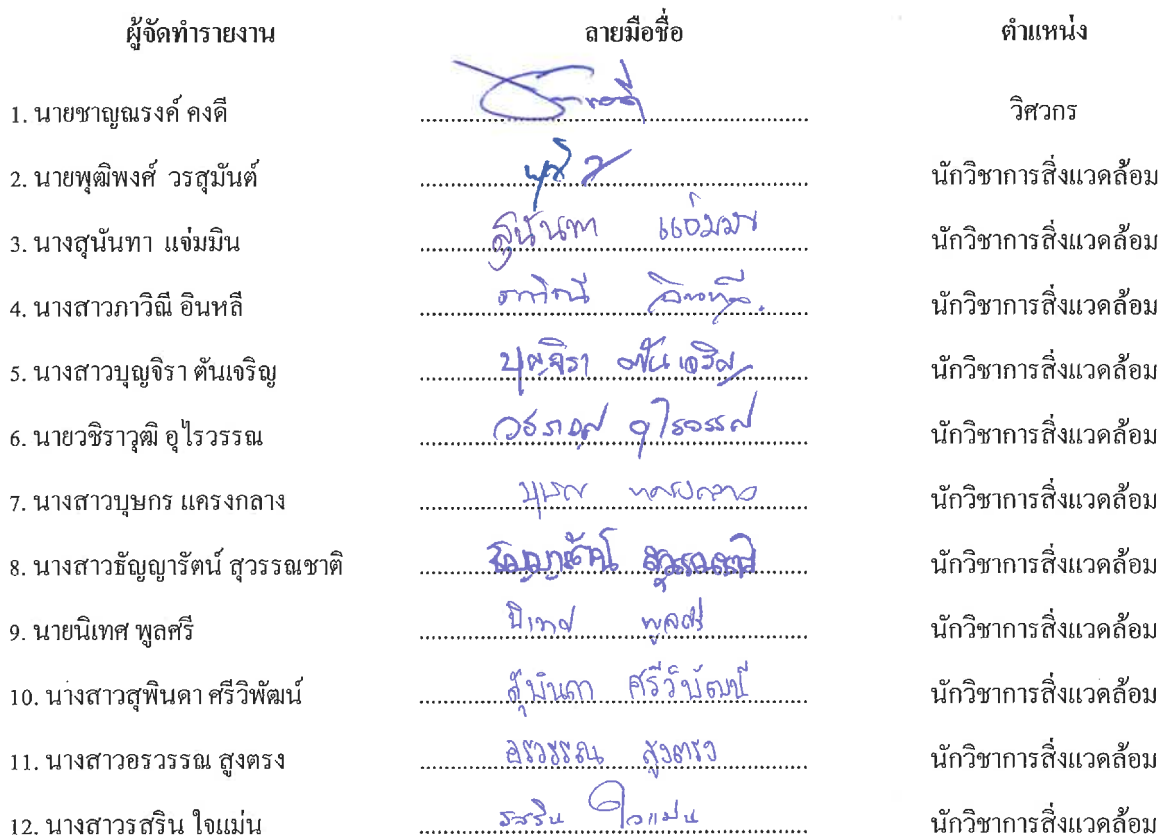 ผู้จัดทำรายงาน ลายมือชื่อ ตำแหน่ง
1. นายชาญณรงค์ คงดี วิศวกร
2. นายพุฒิพงศ์ วรสุมันต์ นักวิชาการสิ่งแวดล้อม
3. นางสุนันทา แจ่มมิน สุนันทา แจ่มมิน นักวิชาการสิ่งแวดล้อม
4. นางสาวภาวิณี อินหลี ภาวิณี อินหลี นักวิชาการสิ่งแวดล้อม
5. นางสาวบุญจิรา ตันเจริญ บุญจิรา ตันเจริญ นักวิชาการสิ่งแวดล้อม
6. นายวชิราวุฒิ อุไรวรรณ อุไรวรรณ นักวิชาการสิ่งแวดล้อม
7. นางสาวบุษกร แครงกลาง นักวิชาการสิ่งแวดล้อม
8. นางสาวธัญญารัตน์ สุวรรณชาติ ธัญญารัตน์ สุวรรณชาติ นักวิชาการสิ่งแวดล้อม
9. นายนิเทศ พูลศรี นิเทศ พูลศรี นักวิชาการสิ่งแวดล้อม
10. นางสาวสุพินดา ศรีวิพัฒน์ สุพินดา ศรีวิพัฒน์ นักวิชาการสิ่งแวดล้อม
11. นางสาวอรวรรณ สูงตรง อรวรรณ สูงตรง นักวิชาการสิ่งแวดล้อม
12. นางสาวรสริน ใจแม่น รสริน ใจแม่น นักวิชาการสิ่งแวดล้อม